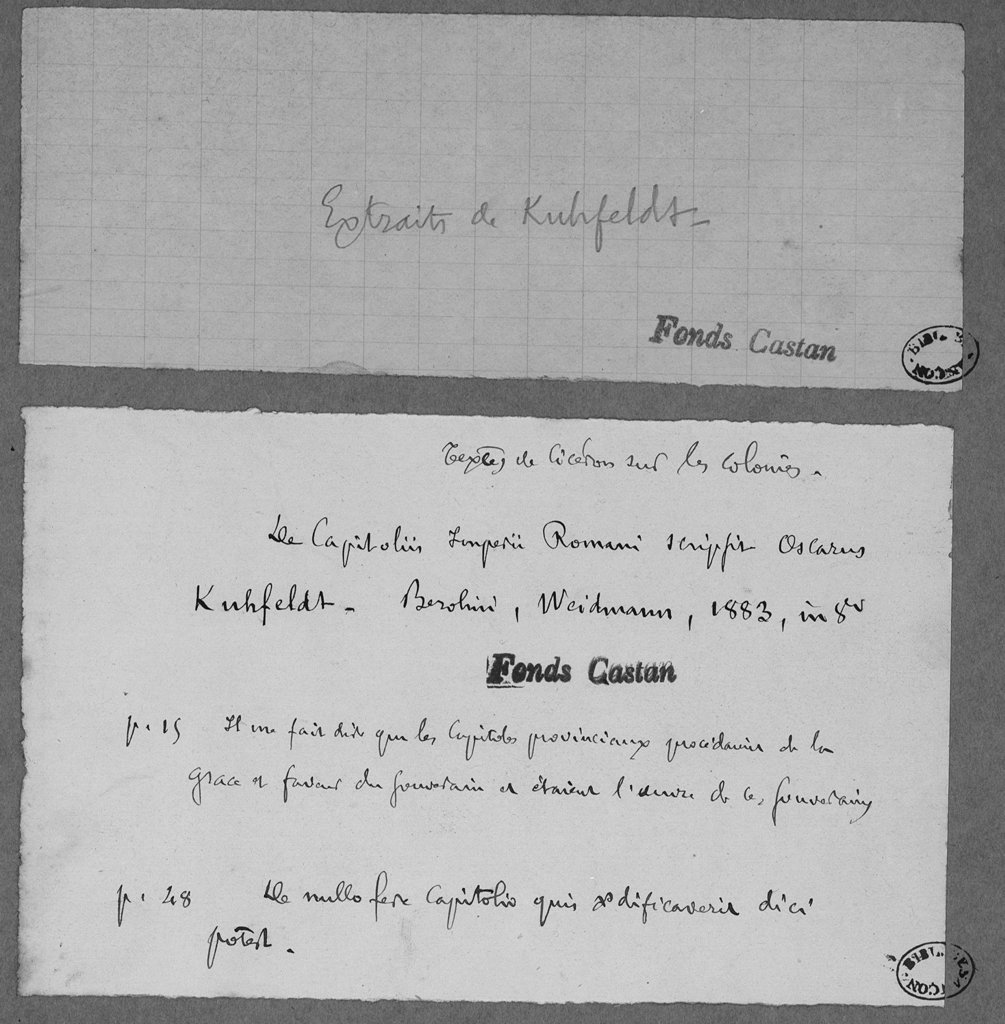 Extraits de Kuhfeldt
Fonds Castan
Textes de Cicéron sur les colonies.
De Capitoliis Imperii Romani scripsit Oscarus
Kuhfeldt - Berolini, Weidmann, 1883, in 8º
Fonds Castan
p. 15 Il me fait dire que les Capitoles provinciaux procédaient de la
grace et faveur du souverain et étaient l'œuvre de ces souverains
p. 28 De nullo fere Capitolio quis ædificaverit dici
potest.